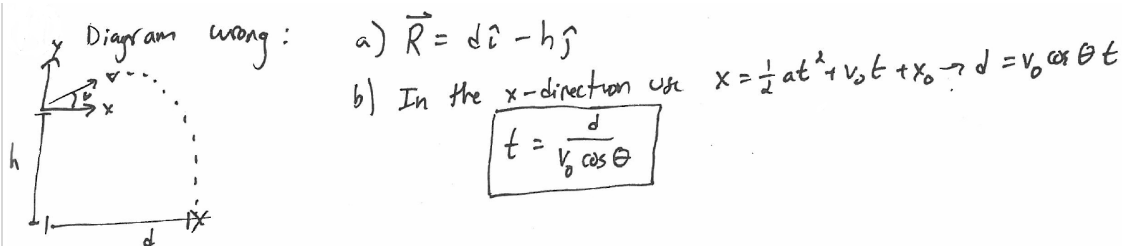 Diagram wrong:
y
v
θ
x
h
d
a) R⃗ = dî - hĵ
b) In the x-direction use x = ½ at² + v₀t + x₀ → d = v₀ cos θ t
t = d / (v₀ cos θ)